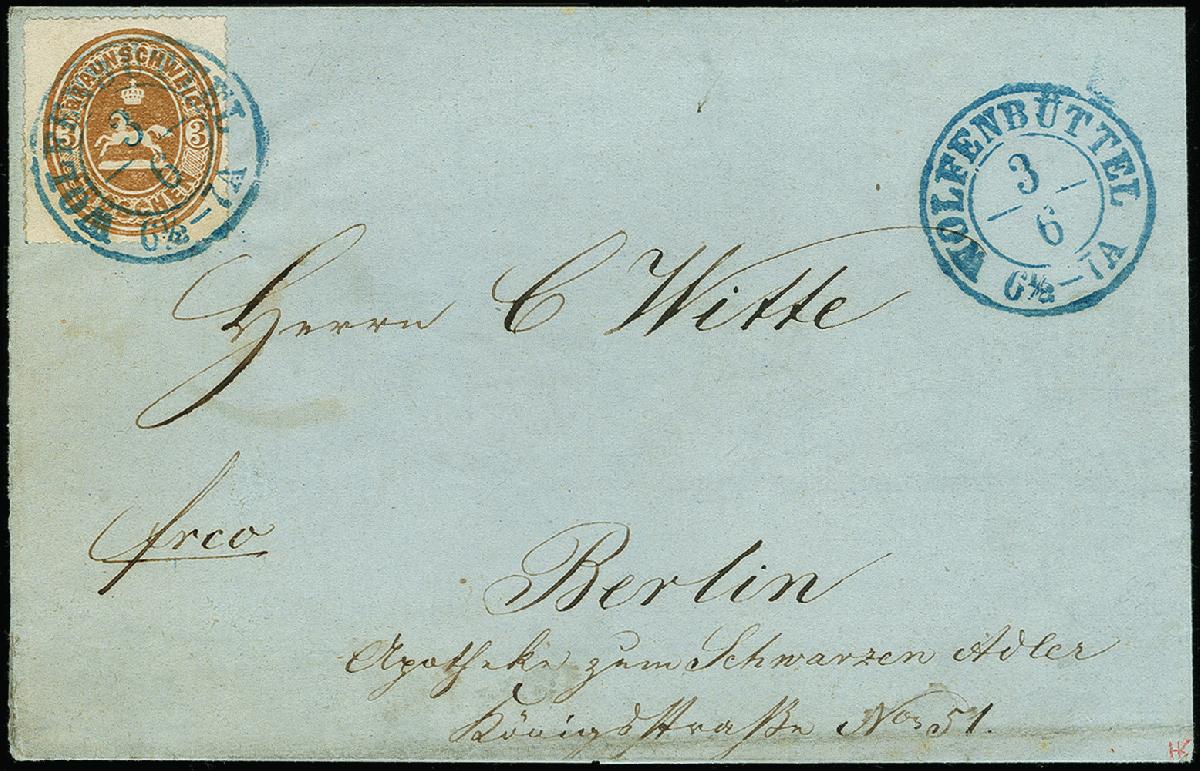 BRAUNSCHWEIG
3 3
GROSCHEN
WOLFENBÜTTEL
3
6
6½–7A
WOLFENBÜTTEL
3
6
6½–7A
Herrn C Witte
frco
Berlin
Apotheke zum Schwarzen Adler
Königsstraße No 51.
HK